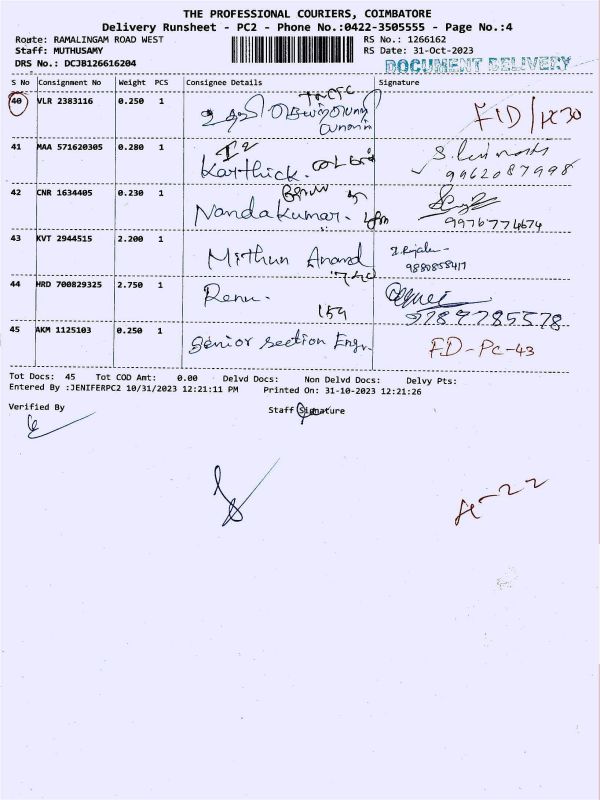 THE PROFESSIONAL COURIERS, COIMBATORE
Delivery Runsheet - PC2 - Phone No.:0422-3505555 - Page No.:4
Roate: RAMALINGAM ROAD WEST RS No.: 1266162
Staff: MUTHUSAMY RS Date: 31-Oct-2023
DRS No.: DCJB126616204 DOCUMENT DELIVERY
S No Consignment No Weight PCS Consignee Details Signature
40 VLR 2383116 0.250 1
41 MAA 571620305 0.280 1 Karthick. 9962087998
42 CNR 1634405 0.230 1 Nandakumar. 9976774674
43 KVT 2944515 2.200 1 Mithun Anand 9880858417
44 HRD 700829325 2.750 1 Renu. 9787785578
159
45 AKM 1125103 0.250 1 Senior Section Engr. FD-PC-43
Tot Docs: 45 Tot COD Amt: 0.00 Delvd Docs: Non Delvd Docs: Delvy Pts:
Entered By :JENIFERPC2 10/31/2023 12:21:11 PM Printed On: 31-10-2023 12:21:26
Verified By Staff Signature